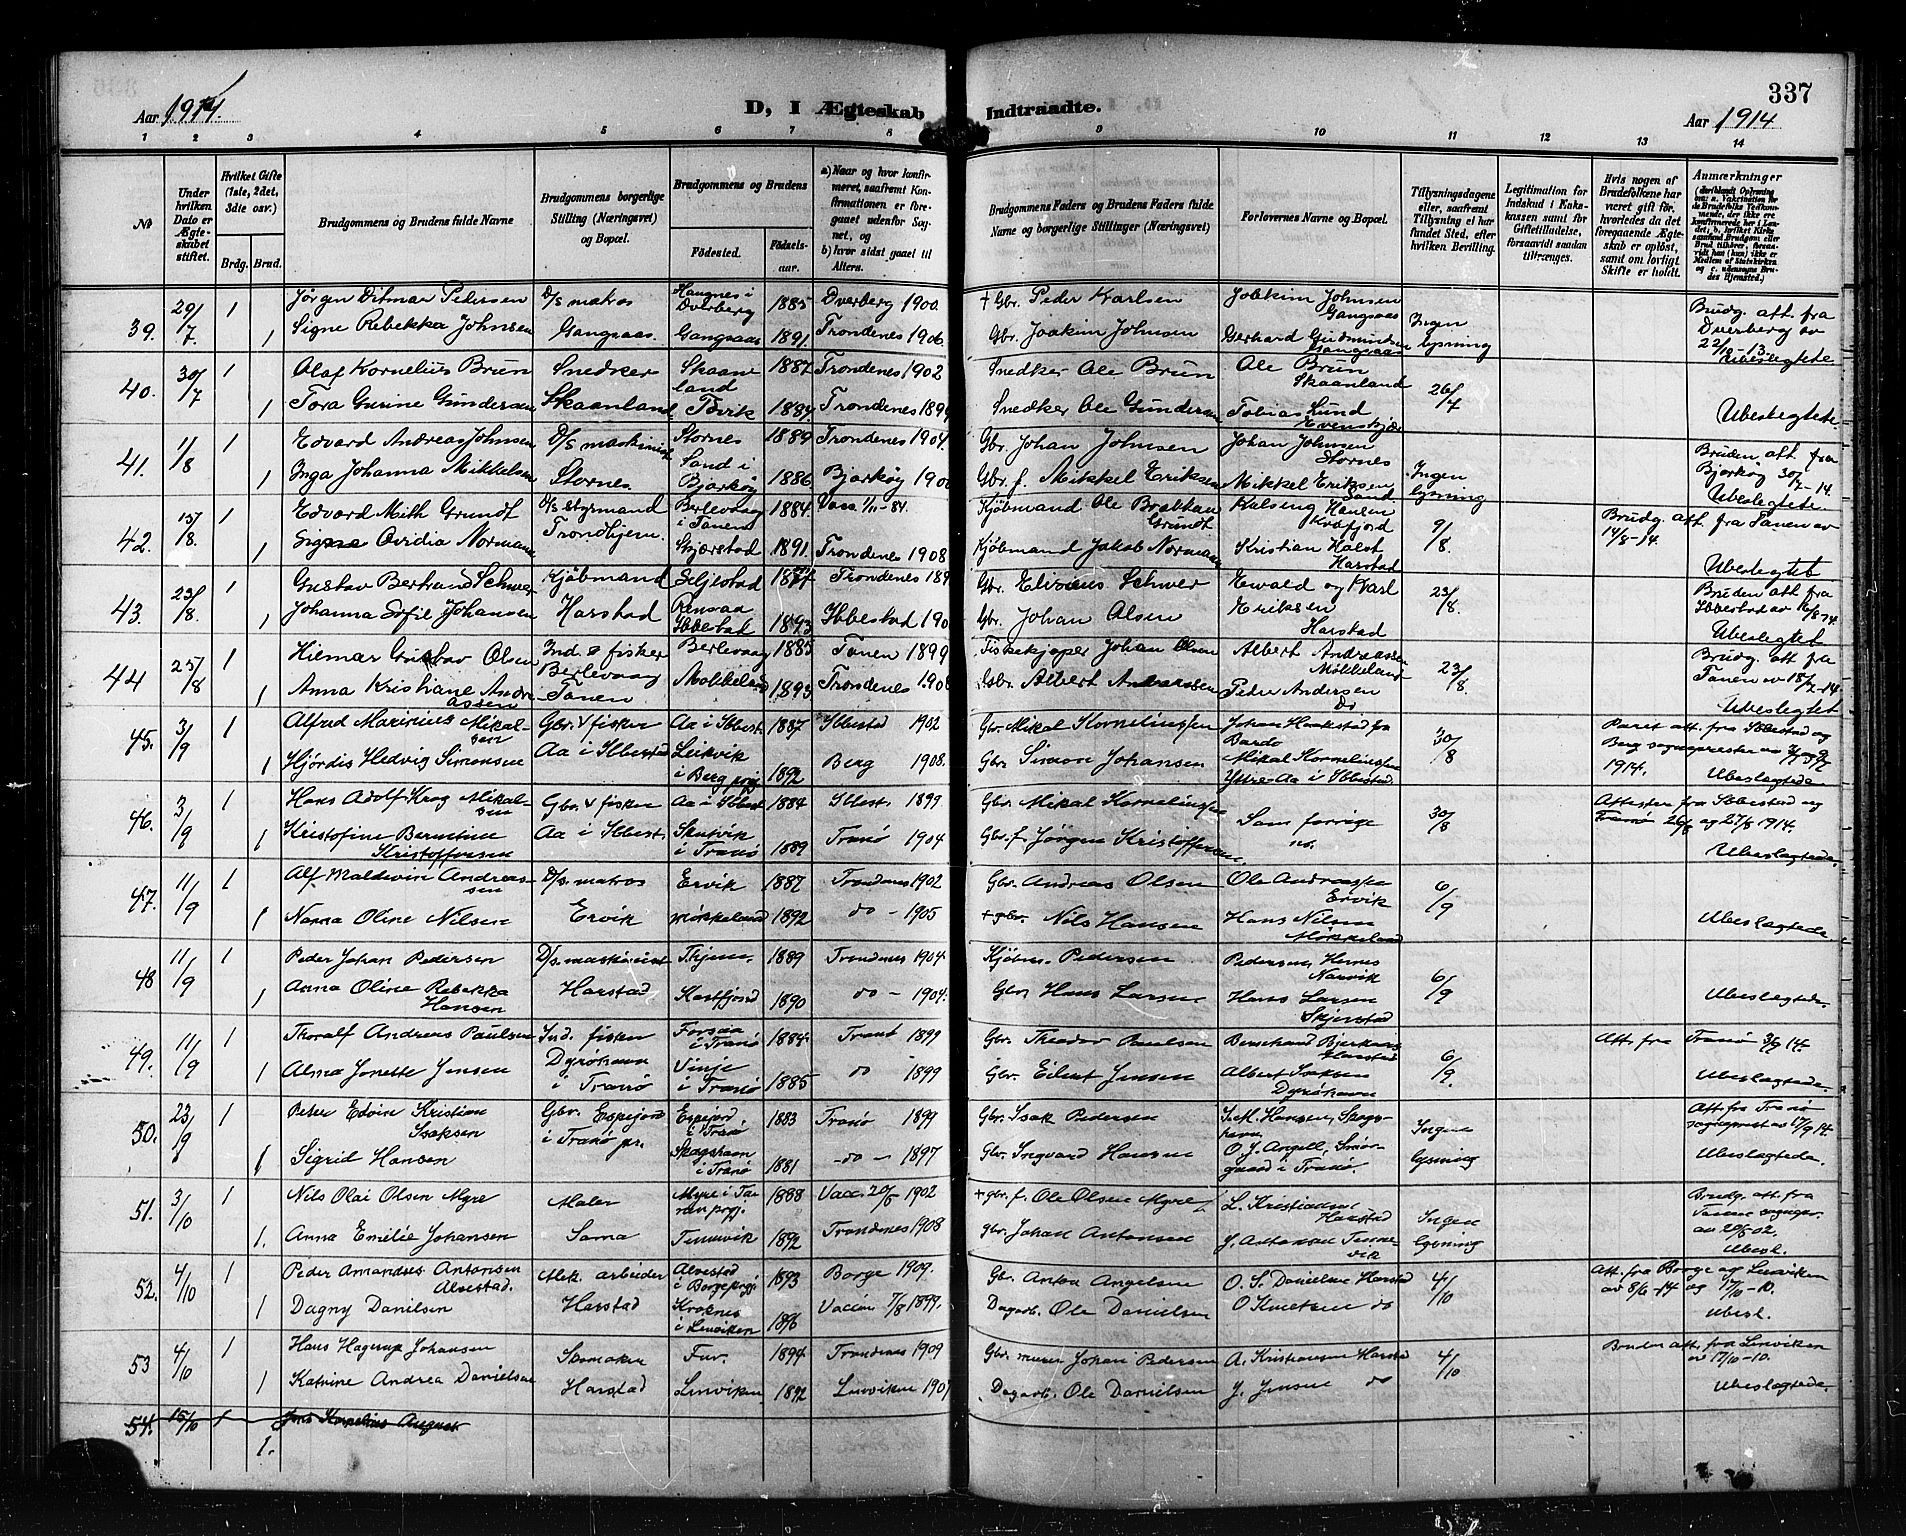 337
Aar 1914.
D, I Ægteskab Indtraadte.
Aar 1914
1 2 3 4 5 6 7 8 9 10 11 12 13 14
No
Under hvilken Dato er Ægteskabet stiftet.
Hvilket Gifte (1ste, 2det, 3die osv.)
Brdg. Brud.
Brudgommens og Brudens fulde Navne
Brudgommens borgerlige Stilling (Næringsvei) og Bopæl.
Brudgommens og Brudens
Fødested.
Fødselsaar.
a) Naar og hvor konfirmeret, saafremt Konfirmationen er foregaaet udenfor Sognet, og
b) hvor sidst gaaet til Alters.
Brudgommens Faders og Brudens Faders fulde Navne og borgerlige Stillinger (Næringsvei)
Forlovernes Navne og Bopæl.
Tillysningsdagene eller, saafremt Tillysning ei har fundet Sted, efter hvilken Bevilling.
Legitimation for Indskud i Enkekassen samt for Giftetilladelse, forsaavidt saadan tiltrænges.
Hvis nogen af Brudefolkene har været gift før, hvorledes da det foregaaende Ægteskab er opløst, samt om lovligt Skifte er holdt.
Anmærkninger
39. 29/7. 1 Jörgen Ditmar Pedersen D/s matros Haugnes i Dverberg 1885 Dverberg 1900. + Gbr. Peder Karlsen Joakim Johnsen Gangsaas Ingen lysning Brudg. att. fra Dverberg av 22/10-13.
1 Signe Rebekka Johnsen Gangsaas. Gangsaas 1891. Trondenes 1906 Gbr. Joakim Johnsen Gerhard Gudmundsen Gangsaas Ubeslegtede
40. 30/7 1 Olaf Kornelius Brun Snedker Skaanland 1887 Trondenes 1902 Snedker Ole Brun Ole Brun Skaanland 26/7
1 Tora Gurine Gundersen Skaanland Trondenes Snedker Ole Gundersen Tobias Lund Evenskjær Ubeslegtede
41. 1/8 1 Edvard Andreas Johnsen D/s maskinist Stornes 1889 Trondenes 1904. Gbr. Johan Johnsen Johan Johnsen Stornes Ingen lysning Bruden att. fra Bjarkøy 30/7-14.
1 Inga Johanna Mikkelsen Stornes. Sand i Bjarkøy 1886 Bjarkøy Gbr. f. Mikkel Eriksen Mikkel Eriksen Sand Ubeslegtede
42. 15/8. 1 Edvard Mith Grundt D/s styrmand Berlevaag i Tanen 1884. Vacc. 1/11-84. Kjøbmand Ole Grundt Hansen 9/8. Brudg. att. fra Tanen av 14/8-14.
1 Signe Ovidia Normann Trondhjem. 1891. Trondenes 1908 Kjøbmand Jakob Normann Kristian Holst Harstad Ubeslegtet
43. 23/8. 1 Gustav Bertrand Kjøbmand Seljestad Trondenes Gbr. Ewald og Karl Eriksen Harstad 23/8. Bruden att fra Ibbestad av 16/8-14
1 Johanna Sofie Johansen Harstad Rensaa Ibbestad 1893 Ibbestad Gbr. Johan Olsen Ubeslegtet
44 25/8 1 Hilmar Gustav Olsen Ind & fisker Berlevaag 1885 Tanen 1899 Fiskekjøper Johan Olsen Albert Andreassen Møkkeland 23/8 Brudg. att fra Tanen av 18/7-14
1 Anna Kristiane Andreassen Berlevaag Tanen Møkkeland 1893 Trondenes 1908 Gbr. Albert Andreassen Peder Andersen Do Ubeslegtet
45. 3/9 1 Alfred Marinius Mikalsen Gbr. & fisker Aa i Ibbest. 1887 Ibbestad 1902 Gbr. Mikal Kornelius​sen Johan Haakstad fra Bardo 30/8 Paret att. fra Ibbestad og Berg sogneprester
1 Hjørdis Hedvig Simonsen Aa i Ibbestad Leikvik i Berg prgj. 1892 Berg 1908. Gbr. Simon Johansen Mikal Korneliussen Ytre-Aa i Ibbestad 1914. Ubeslagtede
46. 3/9 1 Hans Adolf Krog Mikalsen Gbr. & fisker Aa i Ibbest 1884 Ibbest. 1899 Gbr. Mikal Korneliussen Som forrige no. 30/8 Attester fra Ibbestad og Tranø 26/8 og 27/8 1914.
1 Kristofine Berntine Kristoffersen Aa i Ibbest. Skutvik i Tranø 1889 Tranø 1904 Gbr. f. Jørgen Kristoffersen Ubeslagtede.
47. 11/9 1 Alf Maldevin Andreassen D/s. matros Ervik 1887 Trondenes 1902 Gbr. Andreas Olsen Ole Andreassen Ervik 6/9
1 Nanna Oline Nilsen Ervik Møkkeland 1892 do - 1905 + gbr. Nils Hansen Hans Nilsen Møkkeland Ubeslagtede.
48 11/9 1 Peder Johan Pedersen D/s. maskinist 1889 Trondenes 1904. Kjøbm. Pedersen Pedersen, Narvik 6/9
1 Anna Oline Rebekka Hansen Harstad 1890 do - 1904. Gbr. Hans Larsen Hans Larsen Ubeslagtede.
49. 11/9 1 Thoralf Andreas Paulsen Ind. fisker Forsaa i Tranø 1884. Tranø 1899 Gbr. Theodor Paulsen Harstad 6/9. Att. fra Tranø 3/9 14.
1 Alma Jonette Jensen Dyrøhavn i Tranø Vinje i Tranø 1885 do - 1899 Gbr. Eilert Jensen Albert Isaksen Dyrøhavn Ubeslagtede.
50. 23/9 1 Peder Edvin Kristian Isaksen Gbr. Espejord i Tranø pr. Espejord i Tranø 1883 Tranø 1899 Gbr. Isak Pedersen Hansen, Skogshavn Ingen lysning Att. fra Tranø sogneprest av 17/9 14.
1 Sigrid Hansen Skogshavn i Tranø 1881 - do - 1897 Gbr. Ingvard Hansen O. J. Angell, i Tranø. Ubeslagtede.
51. 3/10 1 Nils Olai Olsen Myre Maler Myre i Tanen prgj. 1888 Vacc. 20/5 1902 + gbr. f. Ole Olsen Myre L. Kristiansen Harstad Ingen lysning Brudg. att. fra
1. Anna Emelie Johansen Sama Tennevik 1892 Trondenes 1908 gbr. Johan Antonsen J. Antonsen Tennevik Ubesl.
52. 4/10 1 Peder Amandus Antonsen Alvestad Mek. arbeider Alvestad i Borge prgj. 1893 Borge 1909. Gbr. Anton Angelsen O. S. Danielsen Harstad 4/10 Att. fra Borge og Lenviken av 8/6-14 og 17/10-10.
1 Dagny Danilsen Harstad Kroknes i Lenviken 1896 Vaccin 7/8 1899. Dagarb. Ole Danielsen O. do Ubesl.
53 4/10 1 Hans Hagerup Johansen Skomaker 1894 Trondenes 1909 Gbr. murer Johan Pedersen A. Kristiansen Harstad 4/10 Bruden att. fra Lenviken av 17/10-10.
1 Katrine Andrea Danielsen Harstad Lenviken 1892 Lenviken Dagarb. Ole Danielsen J. Jensen do Ubeslagtede.
54. 15/10 1 Jens Kornelius August
1.